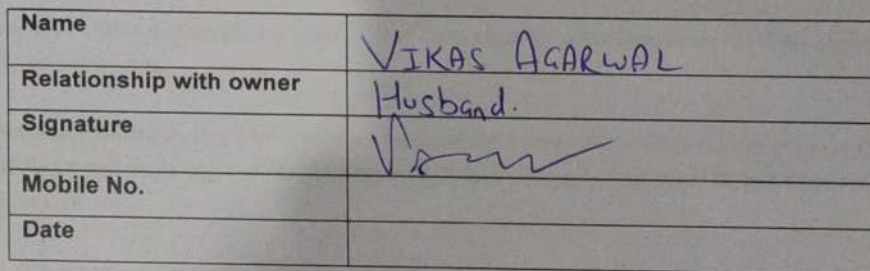 Name VIKAS AGARWAL
Relationship with owner Husband.
Signature
Mobile No.
Date